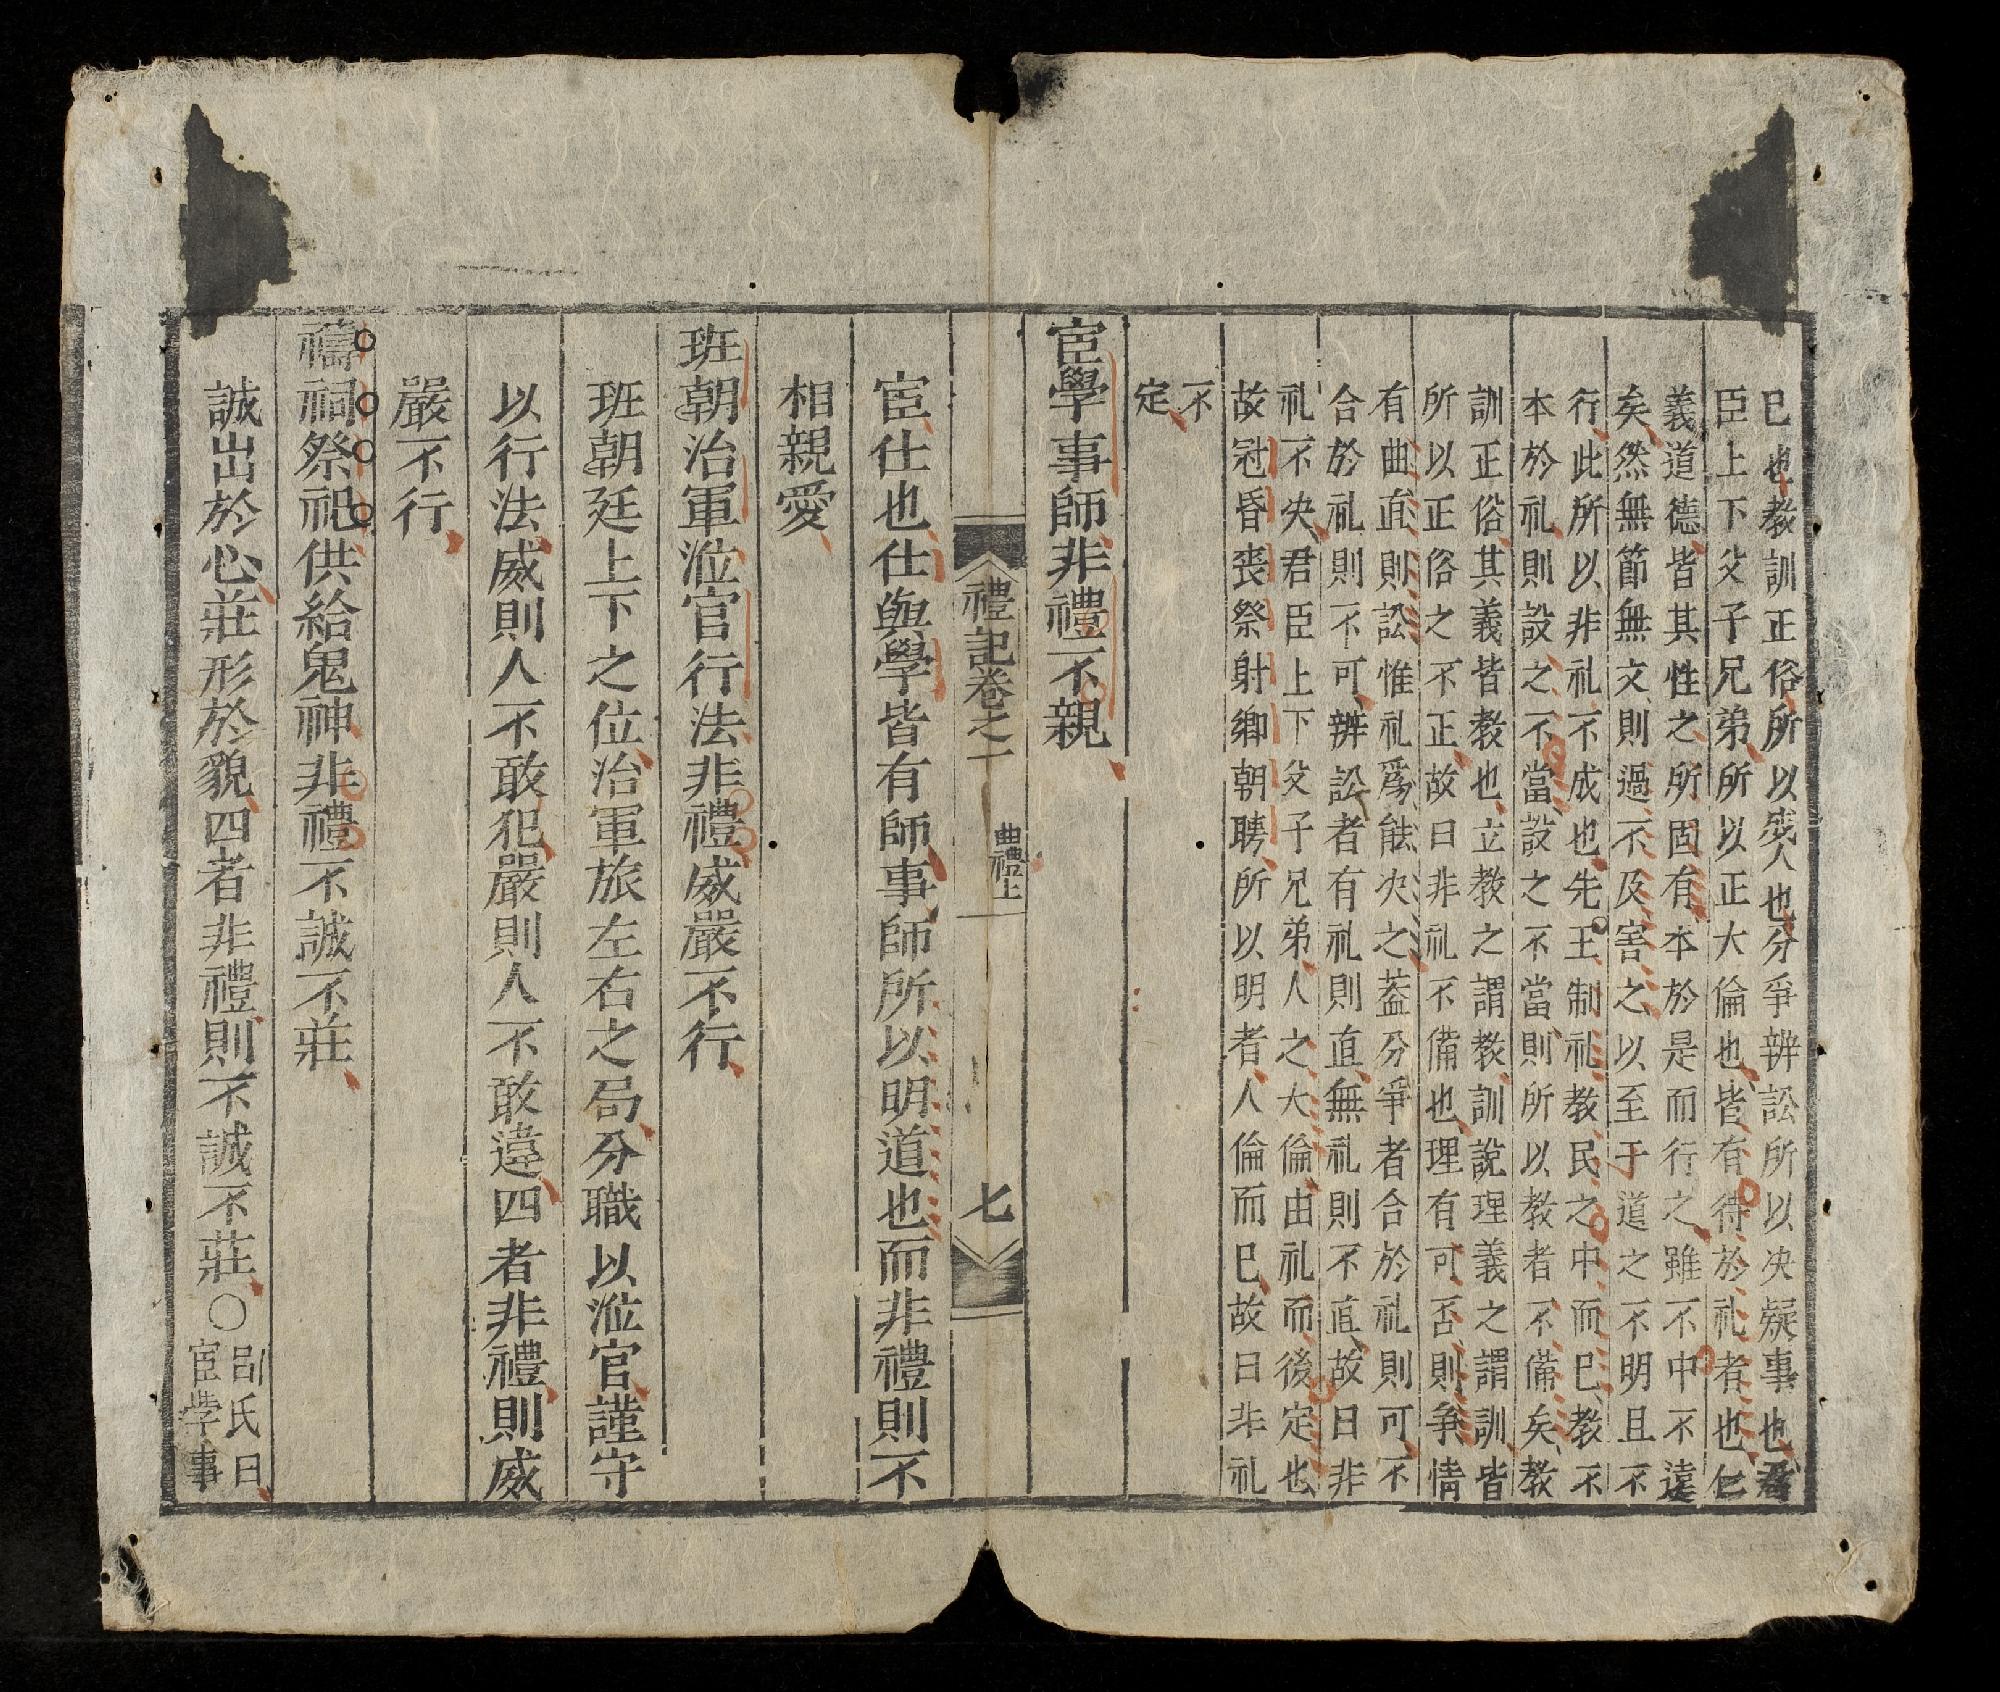 已也教訓正俗所以成人也分爭辨訟所以决疑事也君
臣上下父子兄弟所以正大倫也皆有待於礼者也仁
義道德皆其性之所固有本於是而行之雖不中不遠
矣然無節無文則過不及害之以至于道之不明且不
行此所以非礼不成也先王制礼教民之中而已教不
本於礼則設之不當設之不當則所以教者不備矣教
訓正俗其義皆教也立教之謂教訓說理義之謂訓皆
所以正俗之不正故曰非礼不備也理有可否則争情
有曲直則訟惟礼爲能决之葢分爭者合於礼則可不
合於礼則不可辨訟者有礼則直無礼則不直故曰非
礼不决君臣上下父子兄弟人之大倫由礼而後定也
故冠昏喪祭射鄉朝聘所以明者人倫而已故曰非礼
不
定
宦學事師非禮不親
禮記卷之一
曲禮上
七
宦仕也仕與學皆有師事師所以明道也而非禮則不
相親愛
班朝治軍涖官行法非禮威嚴不行
班朝廷上下之位治軍旅左右之局分職以涖官謹守
以行法威則人不敢犯嚴則人不敢違四者非禮則威
嚴不行
禱祠祭祀供給鬼神非禮不誠不莊
誠出於心莊形於貌四者非禮則不誠不莊○呂氏曰
宦學事